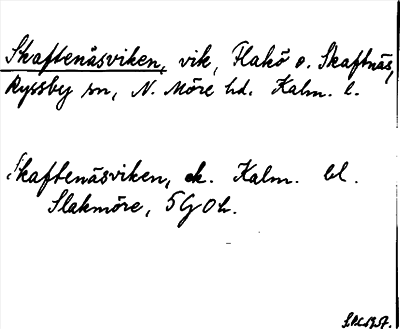 Skaftenäsviken, vik, Flakö o. Skaftnäs,
Ryssby sn, N. Möre hd. Kalm. l.
Skaftenäsviken, ek. Kalm. bl.
Slakmöre, 5G Oh.